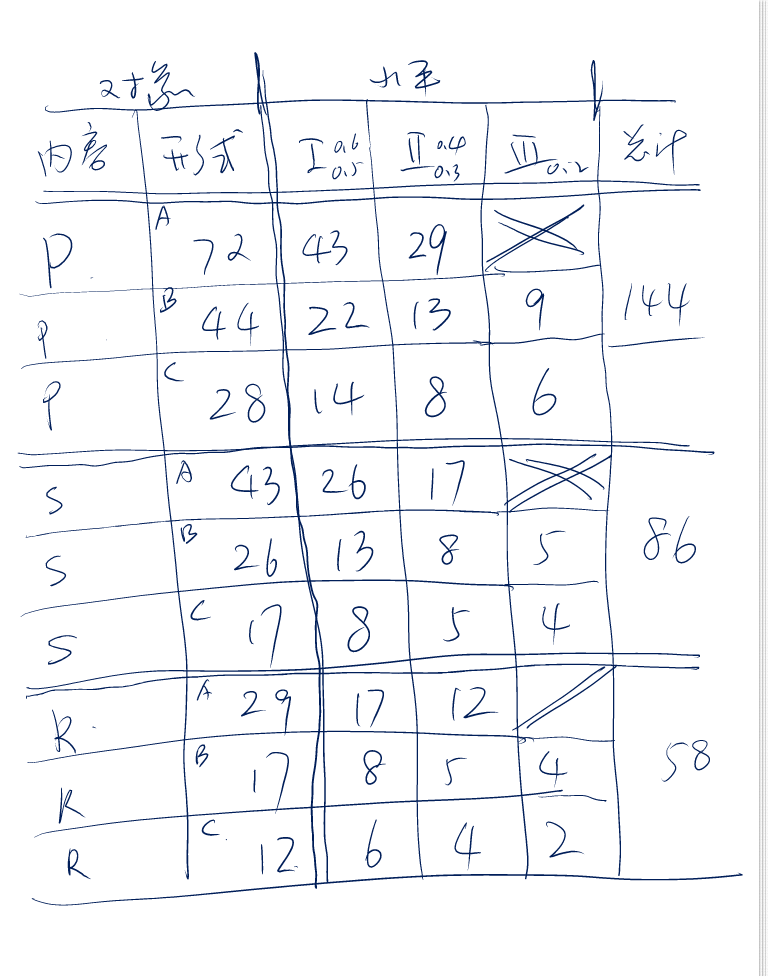 对象 水平
内容 形式 I 0.6 0.5 II 0.4 0.3 III 0.2 总计
P A 72 43 29
P B 44 22 13 9 144
P C 28 14 8 6
S A 43 26 17
S B 26 13 8 5 86
S C 17 8 5 4
R A 29 17 12
R B 17 8 5 4 58
R C 12 6 4 2